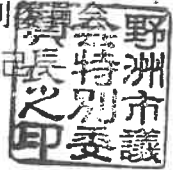 野洲市議
会特別委
員長之印